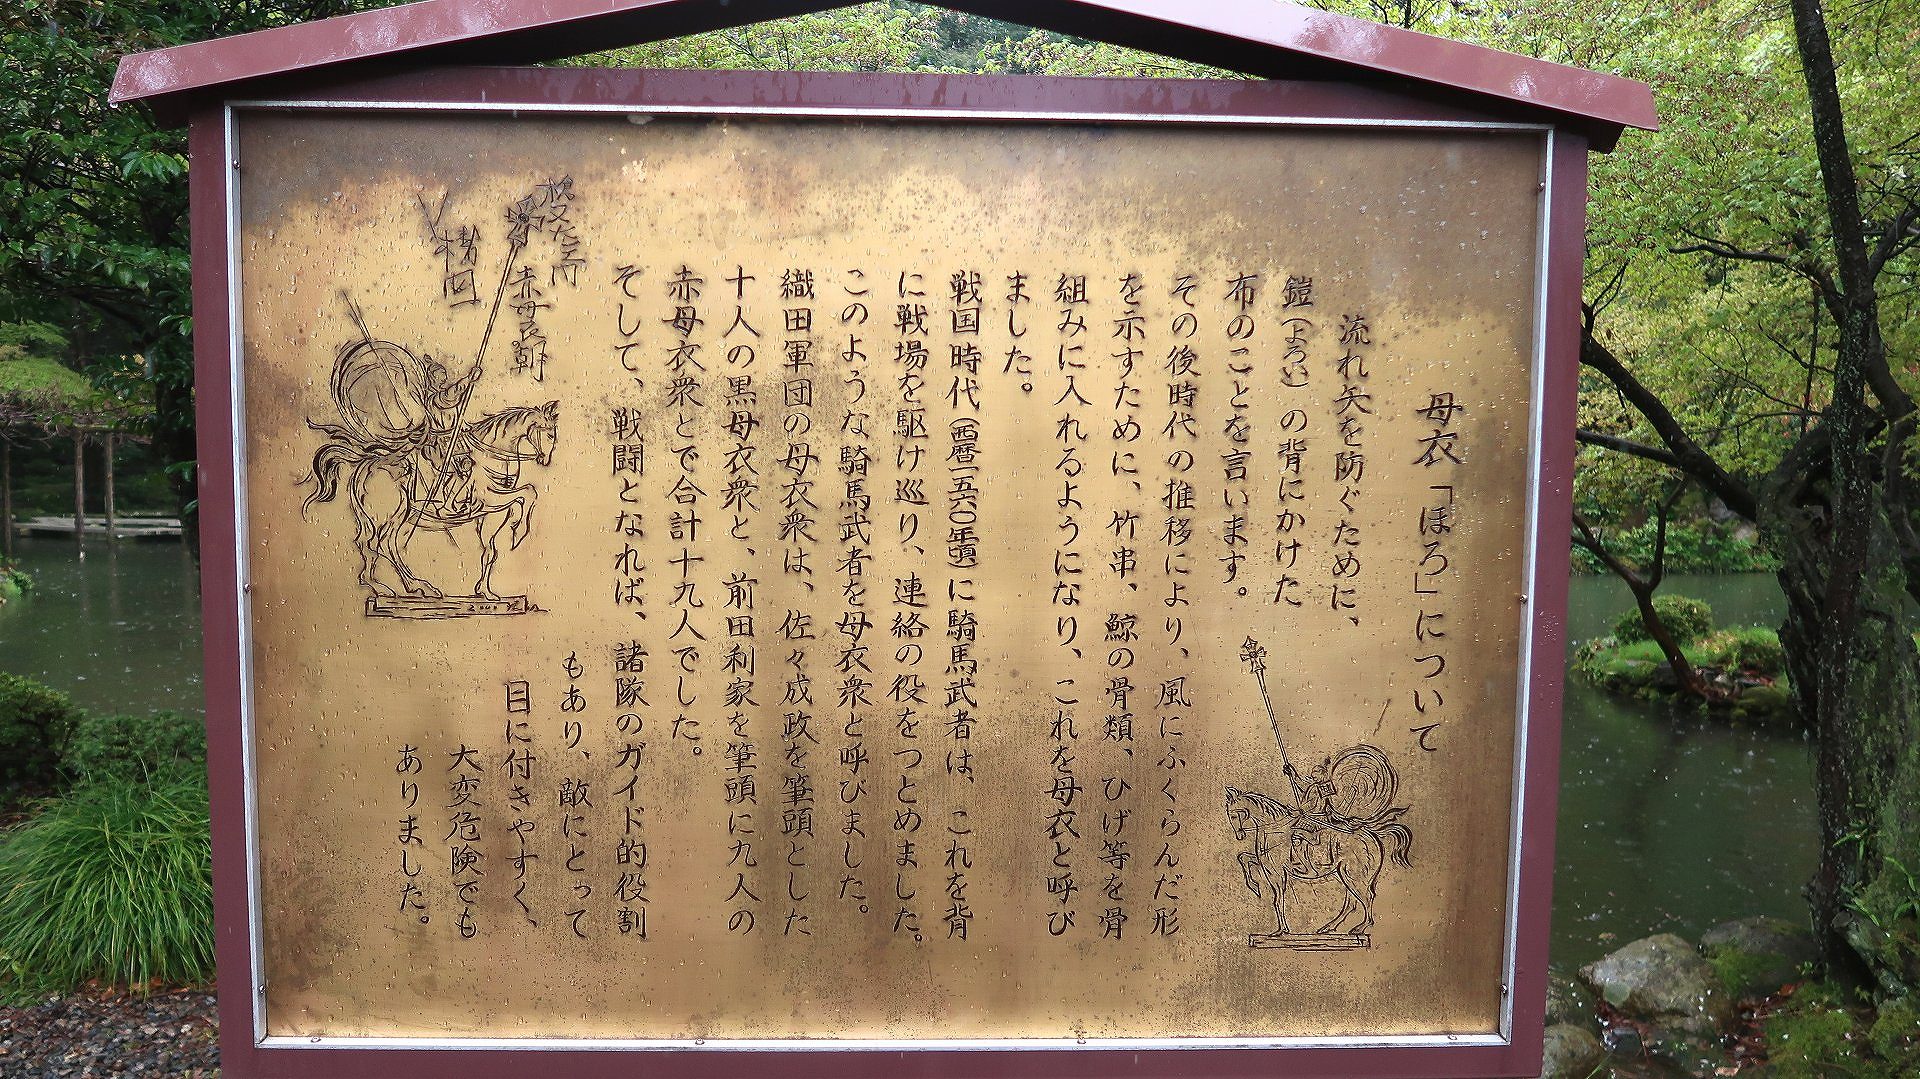 母衣「ほろ」について
流れ矢を防ぐために、
鎧(よろい)の背にかけた
布のことを言います。
その後時代の推移により、風にふくらんだ形
を示すために、竹串、鯨の骨類、ひげ等を骨
組みに入れるようになり、これを母衣と呼び
ました。
戦国時代(西暦一五六〇年頃)に騎馬武者は、これを背
に戦場を駆け巡り、連絡の役をつとめました。
このような騎馬武者を母衣衆と呼びました。
織田軍団の母衣衆は、佐々成政を筆頭とした
十人の黒母衣衆と、前田利家を筆頭に九人の
赤母衣衆とで合計十九人でした。
そして、戦闘となれば、諸隊のガイド的役割
もあり、敵にとって
目に付きやすく、
大変危険でも
ありました。
赤母衣